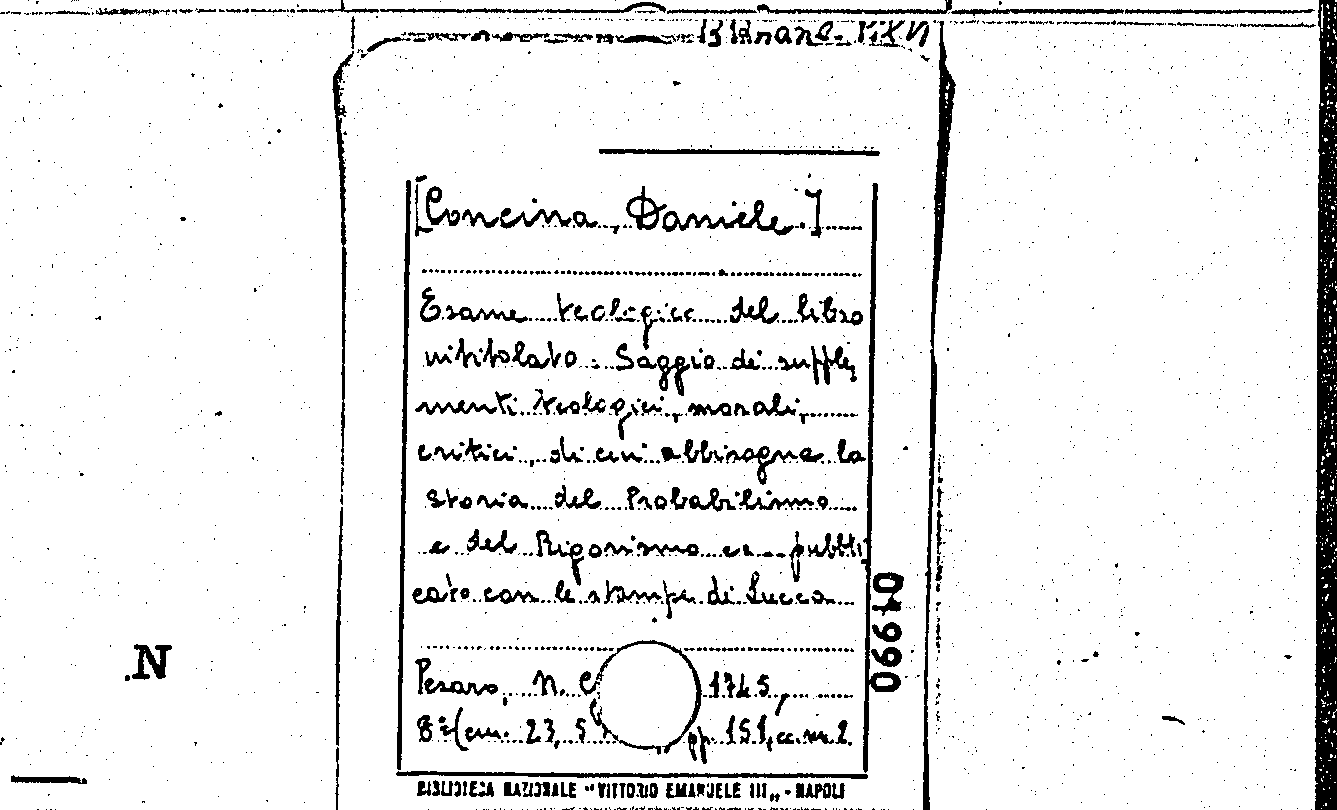 B. Branc. XIX N
[Concina, Daniele.]
Esame teologico del libro
intitolato: Saggio di supple
menti teologici, morali,
critici, di cui abbisogna la
storia del Probabilismo
e del Rigorismo ec... pubbli
cato con le stampe di Lucca
Pesaro, N. 1745,
8° (cm. 23,5 pp. 151, cc. m. 2.
BIBLIOTECA NAZIONALE "VITTORIO EMANUELE III„ - NAPOLI
01990
.N